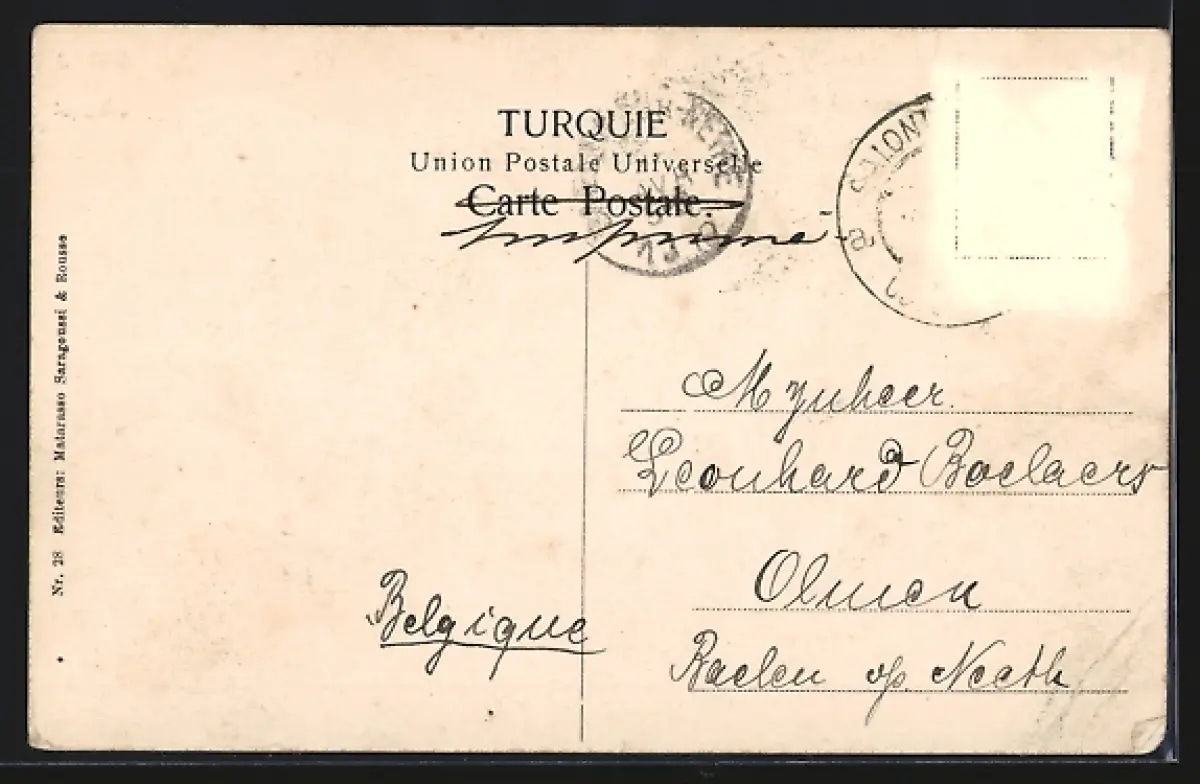 TURQUIE
Union Postale Universelle
Carte Postale.
Imprimé
Nr. 28 Editeurs: Matarasso Saragoussi & Rousso
Mynheer
Leonhard Boelaers
Olmen
Baelen op Neeth
Belgique